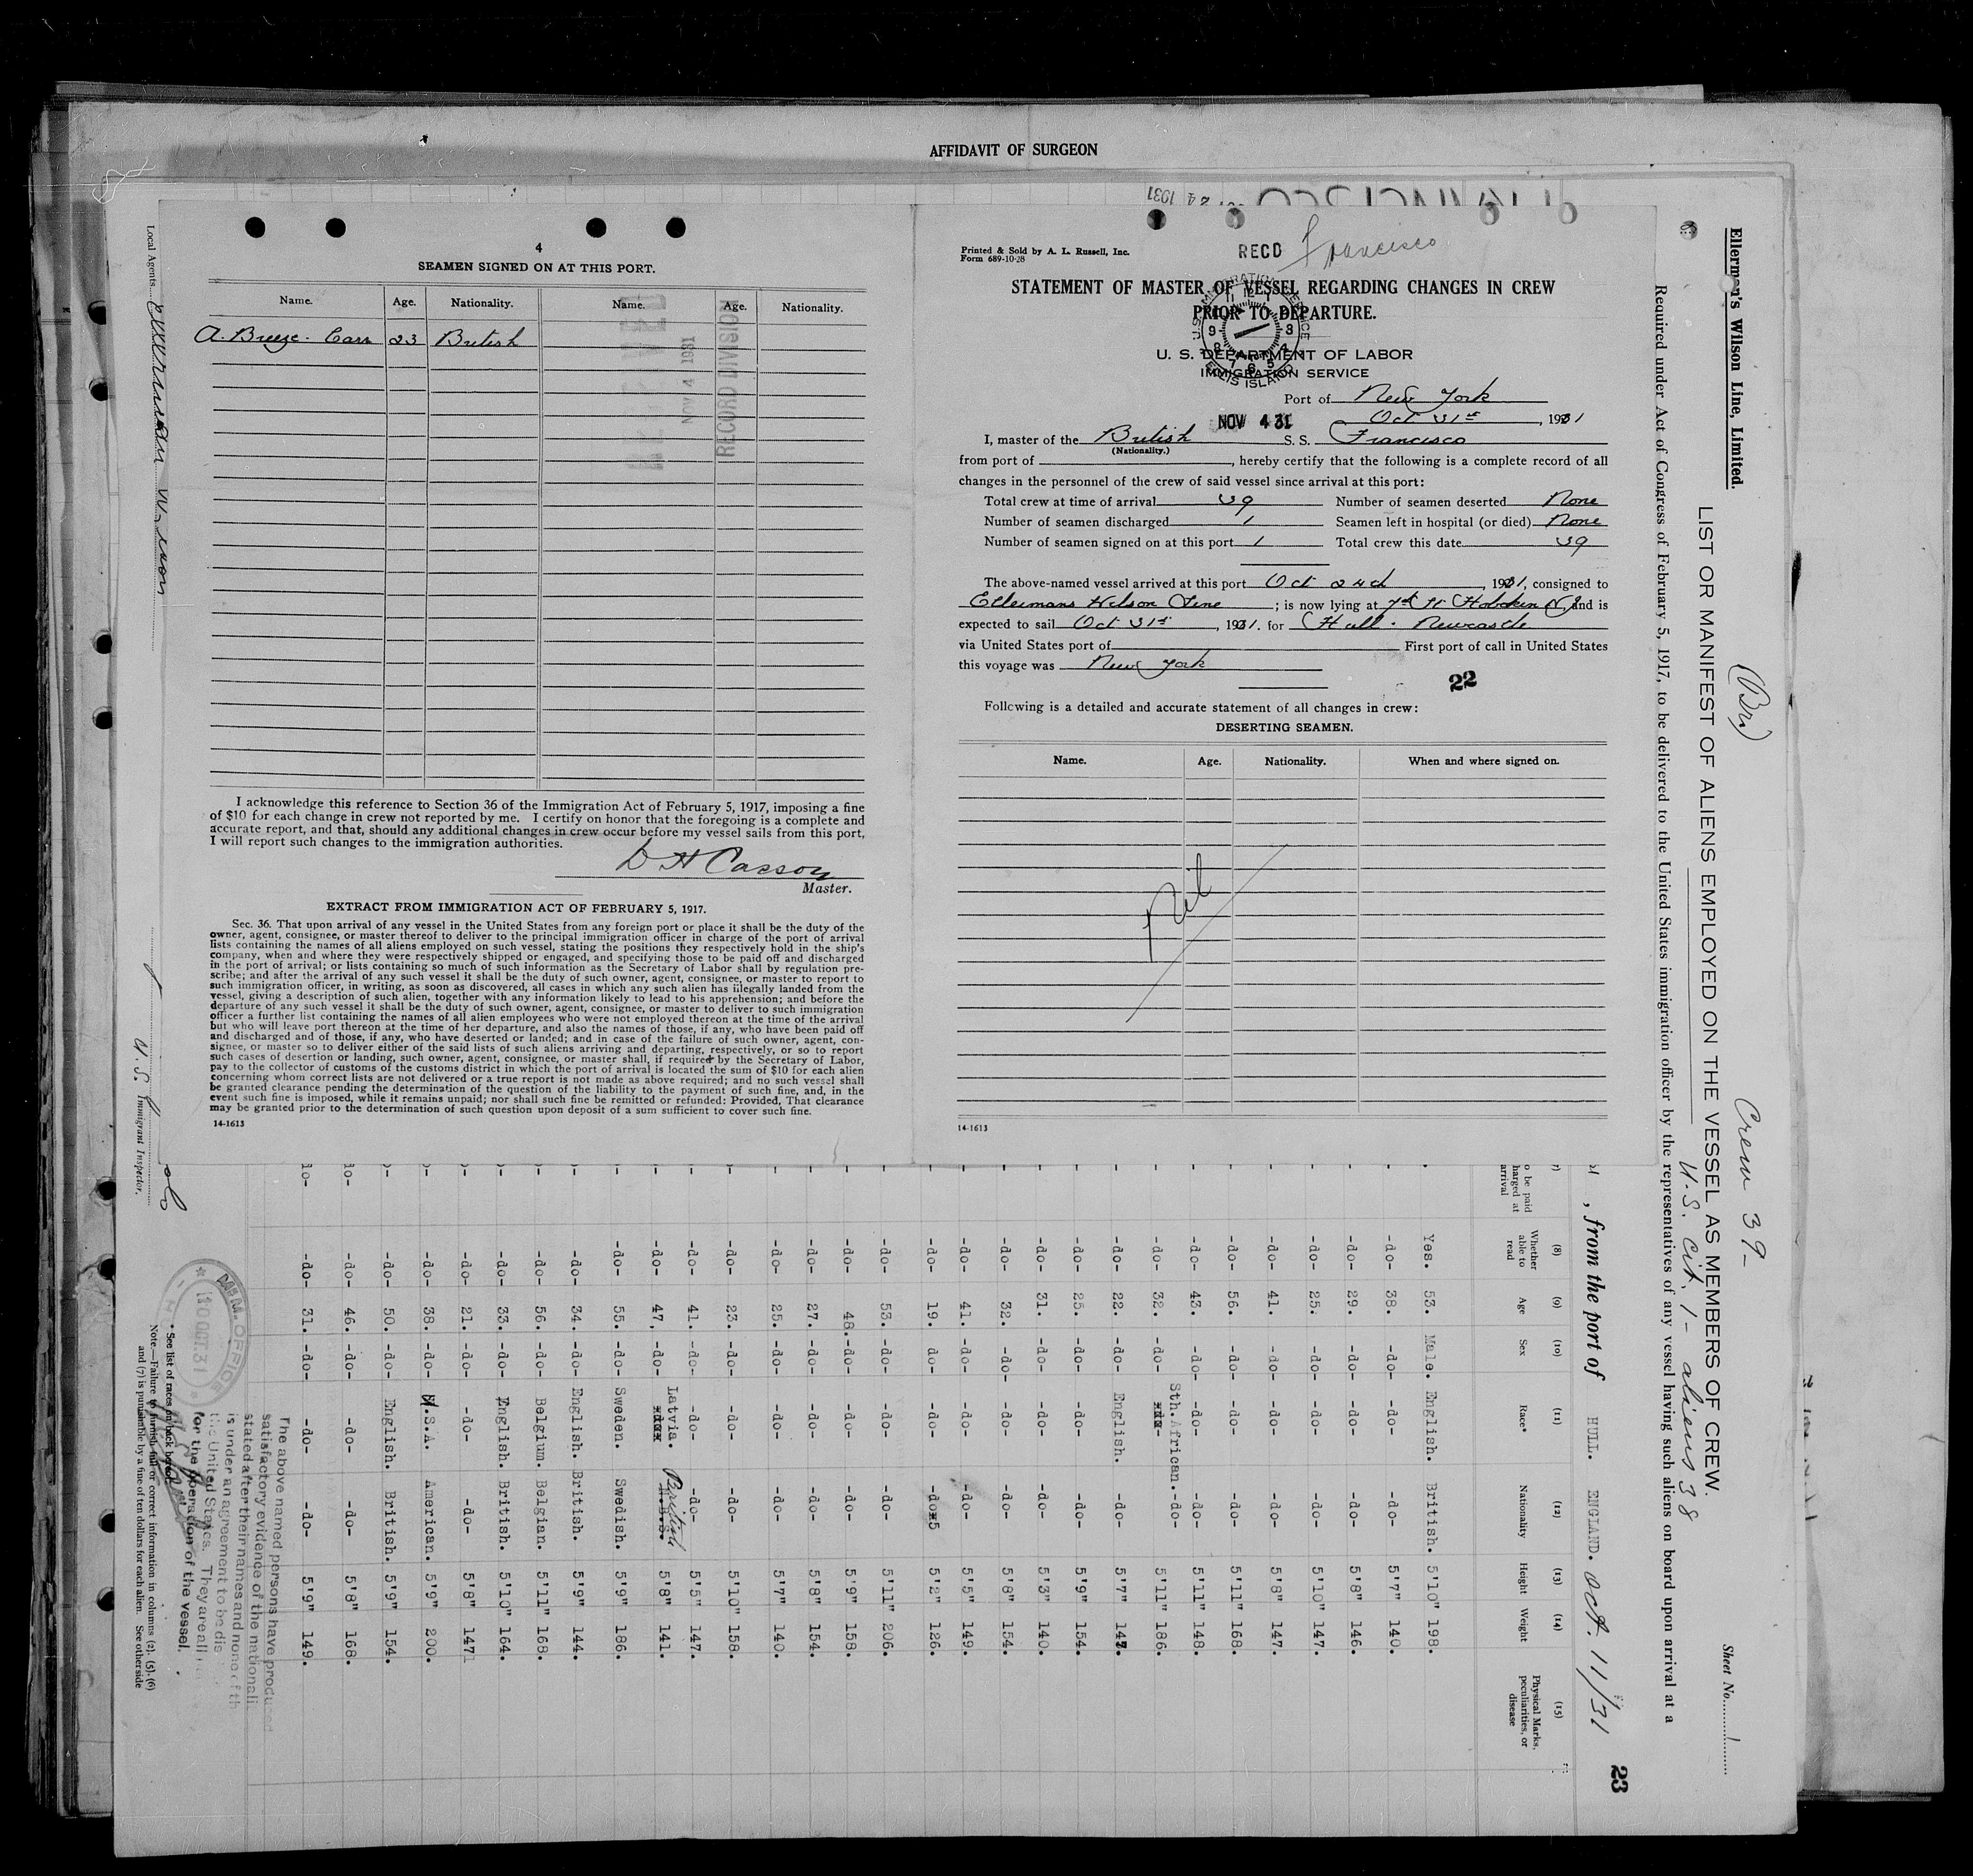 AFFIDAVIT OF SURGEON
4
SEAMEN SIGNED ON AT THIS PORT.
Name. Age. Nationality. Name. Age. Nationality.
A. Breeze. Carr 23 British
NOV 4 1931
RECORD DIVISION
I acknowledge this reference to Section 36 of the Immigration Act of February 5, 1917, imposing a fine
of $10 for each change in crew not reported by me. I certify on honor that the foregoing is a complete and
accurate report, and that, should any additional changes in crew occur before my vessel sails from this port,
I will report such changes to the immigration authorities.
D H Casson
Master.
EXTRACT FROM IMMIGRATION ACT OF FEBRUARY 5, 1917.
Sec. 36. That upon arrival of any vessel in the United States from any foreign port or place it shall be the duty of the
owner, agent, consignee, or master thereof to deliver to the principal immigration officer in charge of the port of arrival
lists containing the names of all aliens employed on such vessel, stating the positions they respectively hold in the ship's
company, when and where they were respectively shipped or engaged, and specifying those to be paid off and discharged
in the port of arrival; or lists containing so much of such information as the Secretary of Labor shall by regulation pre-
scribe; and after the arrival of any such vessel it shall be the duty of such owner, agent, consignee, or master to report to
such immigration officer, in writing, as soon as discovered, all cases in which any such alien has illegally landed from the
vessel, giving a description of such alien, together with any information likely to lead to his apprehension; and before the
departure of any such vessel it shall be the duty of such owner, agent, consignee, or master to deliver to such immigration
officer a further list containing the names of all alien employees who were not employed thereon at the time of the arrival
but who will leave port thereon at the time of her departure, and also the names of those, if any, who have been paid off
and discharged and of those, if any, who have deserted or landed; and in case of the failure of such owner, agent, con-
signee, or master so to deliver either of the said lists of such aliens arriving and departing, respectively, or so to report
such cases of desertion or landing, such owner, agent, consignee, or master shall, if required by the Secretary of Labor,
pay to the collector of customs of the customs district in which the port of arrival is located the sum of $10 for each alien
concerning whom correct lists are not delivered or a true report is not made as above required; and no such vessel shall
be granted clearance pending the determination of the question of the liability to the payment of such fine, and, in the
event such fine is imposed, while it remains unpaid; nor shall such fine be remitted or refunded: Provided, That clearance
may be granted prior to the determination of such question upon deposit of a sum sufficient to cover such fine.
14-1613
Printed & Sold by A. L. Russell, Inc.
Form 689-10-28
RECD Francisco
STATEMENT OF MASTER OF VESSEL REGARDING CHANGES IN CREW
PRIOR TO DEPARTURE.
U. S. DEPARTMENT OF LABOR
IMMIGRATION SERVICE
ELLIS ISLAND
Port of New York
NOV 4 31 Oct 31st, 1931
I, master of the British S. S. Francisco
(Nationality.)
from port of , hereby certify that the following is a complete record of all
changes in the personnel of the crew of said vessel since arrival at this port:
Total crew at time of arrival 39 Number of seamen deserted None
Number of seamen discharged 1 Seamen left in hospital (or died) None
Number of seamen signed on at this port 1 Total crew this date 39
The above-named vessel arrived at this port Oct 24th, 1931, consigned to
Ellermans Wilson Line ; is now lying at 7th St Hoboken NJ and is
expected to sail Oct 31st, 1931. for Hull. Newcastle
via United States port of First port of call in United States
this voyage was New York
22
Following is a detailed and accurate statement of all changes in crew:
DESERTING SEAMEN.
Name. Age. Nationality. When and where signed on.
Nil
14-1613
Ellerman's Wilson Line, Limited.
(Br.) Crew 39-
U.S. Cit. 1- aliens 38
Sheet No. 1
LIST OR MANIFEST OF ALIENS EMPLOYED ON THE VESSEL AS MEMBERS OF CREW.
Required under Act of Congress of February 5, 1917, to be delivered to the United States immigration officer by the representatives of any vessel having such aliens on board upon arrival at a
, from the port of HULL. ENGLAND. Oct. 11/31
23
(8) (9) (10) (11) (12) (13) (14) (15)
Whether able to read Age Sex Race* Nationality Height Weight Physical Marks, peculiarities, or disease
Yes. 53. Male. English. British. 5'10" 198.
-do- 38. -do- -do- -do- 5'7" 140.
-do- 29. -do- -do- -do- 5'8" 146.
-do- 25. -do- -do- -do- 5'10" 147.
-do- 41. -do- -do- -do- 5'8" 147.
-do- 56. -do- -do- -do- 5'11" 168.
-do- 43. -do- -do- -do- 5'11" 148.
-do- 32. -do- Sth.African. -do- 5'11" 186.
-do- 22. -do- English. -do- 5'7" 143.
-do- 25. -do- -do- -do- 5'9" 154.
-do- 31. -do- -do- -do- 5'3" 140.
-do- 32. -do- -do- -do- 5'8" 154.
-do- 41. -do- -do- -do- 5'5" 149.
-do- 19. do- -do- -do- 5'2" 126.
-do- 53. -do- -do- -do- 5'11" 206.
-do- 48. -do- -do- -do- 5'9" 158.
-do- 27. -do- -do- -do- 5'8" 154.
-do- 25. -do- -do- -do- 5'7" 140.
-do- 23. -do- -do- -do- 5'10" 158.
-do- 41. -do- -do- -do- 5'5" 147.
-do- 47, -do- Latvia. British 5'8" 141.
-do- 55. -do- Sweden. Swedish. 5'9" 186.
-do- 34. -do- English. British. 5'9" 144.
-do- 56. -do- Belgium. Belgian. 5'11" 168.
-do- 33. -do- English. British. 5'10" 164.
-do- 21. -do- -do- -do- 5'8" 147
-do- 38. -do- U.S.A. American. 5'9" 200.
-do- 50. -do- English. British. 5'9" 154.
-do- 46. -do- -do- -do- 5'8" 168.
-do- 31. -do- -do- -do- 5'9" 149.
The above named persons have produced
satisfactory evidence of the nationali
stated after their names and none of th
is under an agreement to be dis
the United States. They are all
for the operation of the vessel.
M.M. OFFICE
10 OCT. 31
* See list of races on back hereof.
Note.—Failure to furnish full or correct information in columns (2), (5), (6)
and (7) is punishable by a fine of ten dollars for each alien. See other side
Local Agents Ellerman Wilson
U.S. Immigrant Inspector.